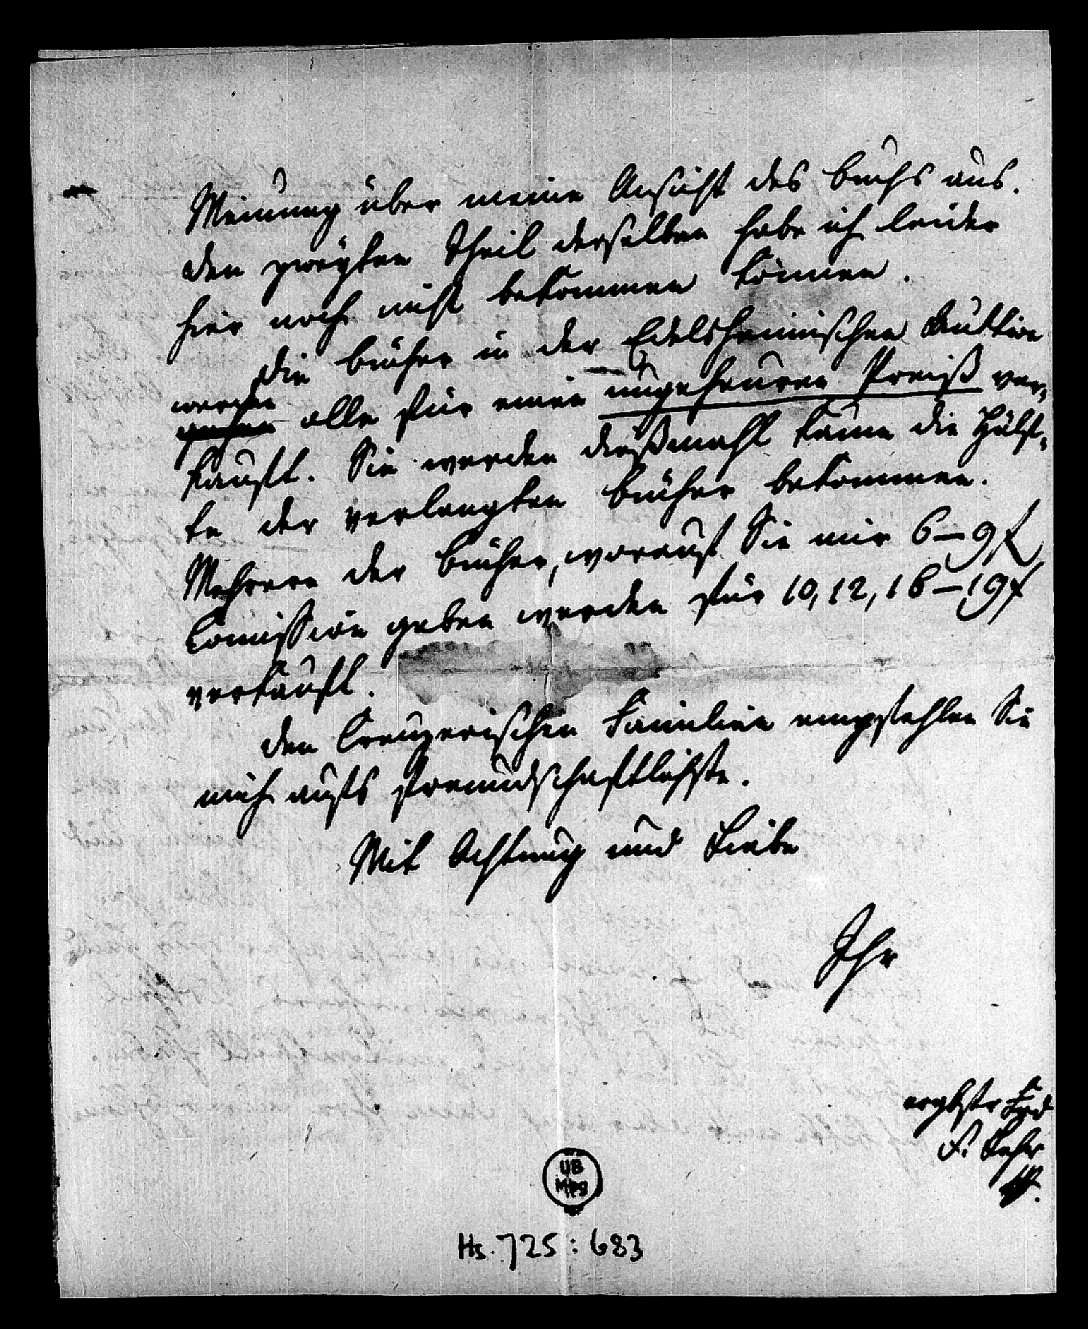 Meinung über meine Ansicht des Buchs aus.
Den zweyten Theil desselben habe ich leider
hier noch nicht bekommen können.
Die Bücher in der Edelsheimischen Auktion
werden
gehen alle für einen ungeheuren Preiß ver-
kauft. Sie werden dießmahl kaum die Hälf-
te der verlangten Bücher bekommen.
Mehrere der Bücher, worauf Sie mir 6–9 f
Comission geben werden für 10, 12, 16–19 f
verkauft.
Den Creuzerischen Familien empfehlen Sie
mich aufs freundschaftlichste.
Mit Achtung und Liebe
Ihr
ergbstr Frd
F. Lehr
UB
Mbg
Hs. 725 : 683